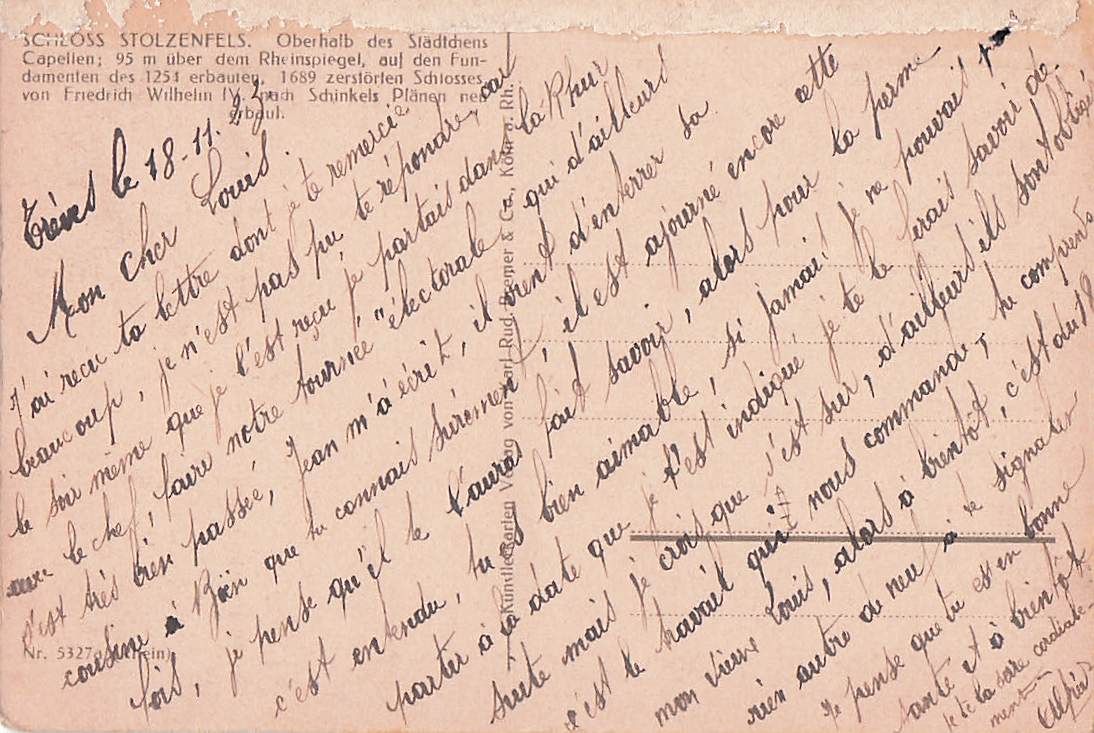 SCHLOSS STOLZENFELS. Oberhalb des Städtchens
Capellen; 95 m über dem Rheinspiegel, auf den Fun-
damenten des 1251 erbauten, 1689 zerstörten Schlosses
von Friedrich Wilhelm IV. nach Schinkels Plänen neu
erbaut.
Trèves le 18-11. 22.
Mon cher Louis.
J'ai reçu ta lettre dont je te remercie
beaucoup, je n'est pas pu te répondre, car
le soir même que je l'est reçu je partais dans la Rhur
avec le chef, faire notre tournée "électorale" qui d'ailleurs
s'est très bien passée, Jean m'a écrit, il vient d'enterrer sa
cousine à Boën que tu connais sûrement, il est ajourné encore cette
fois, je pense qu'il te l'auras fait savoir, alors pour la ferme
c'est entendu, tu es bien aimable, si jamais je ne pouvait pas
partir à la date que je t'est indiqué je te le ferais savoir de
suite mais je crois que c'est sur, d'ailleurs ils sont obligé
c'est le travail qui nous commande, tu comprends
mon vieux Louis, alors à bientôt, c'est du 18
rien autre de neuf à te signaler
Je pense que tu est en bonne
santé et à bientôt
Je te la sare cordiale-
ment
Nr. 5327a (Rhein)
Künstlerkarten Verlag von Karl Rud. Bremer & Co., Köln a. Rh.